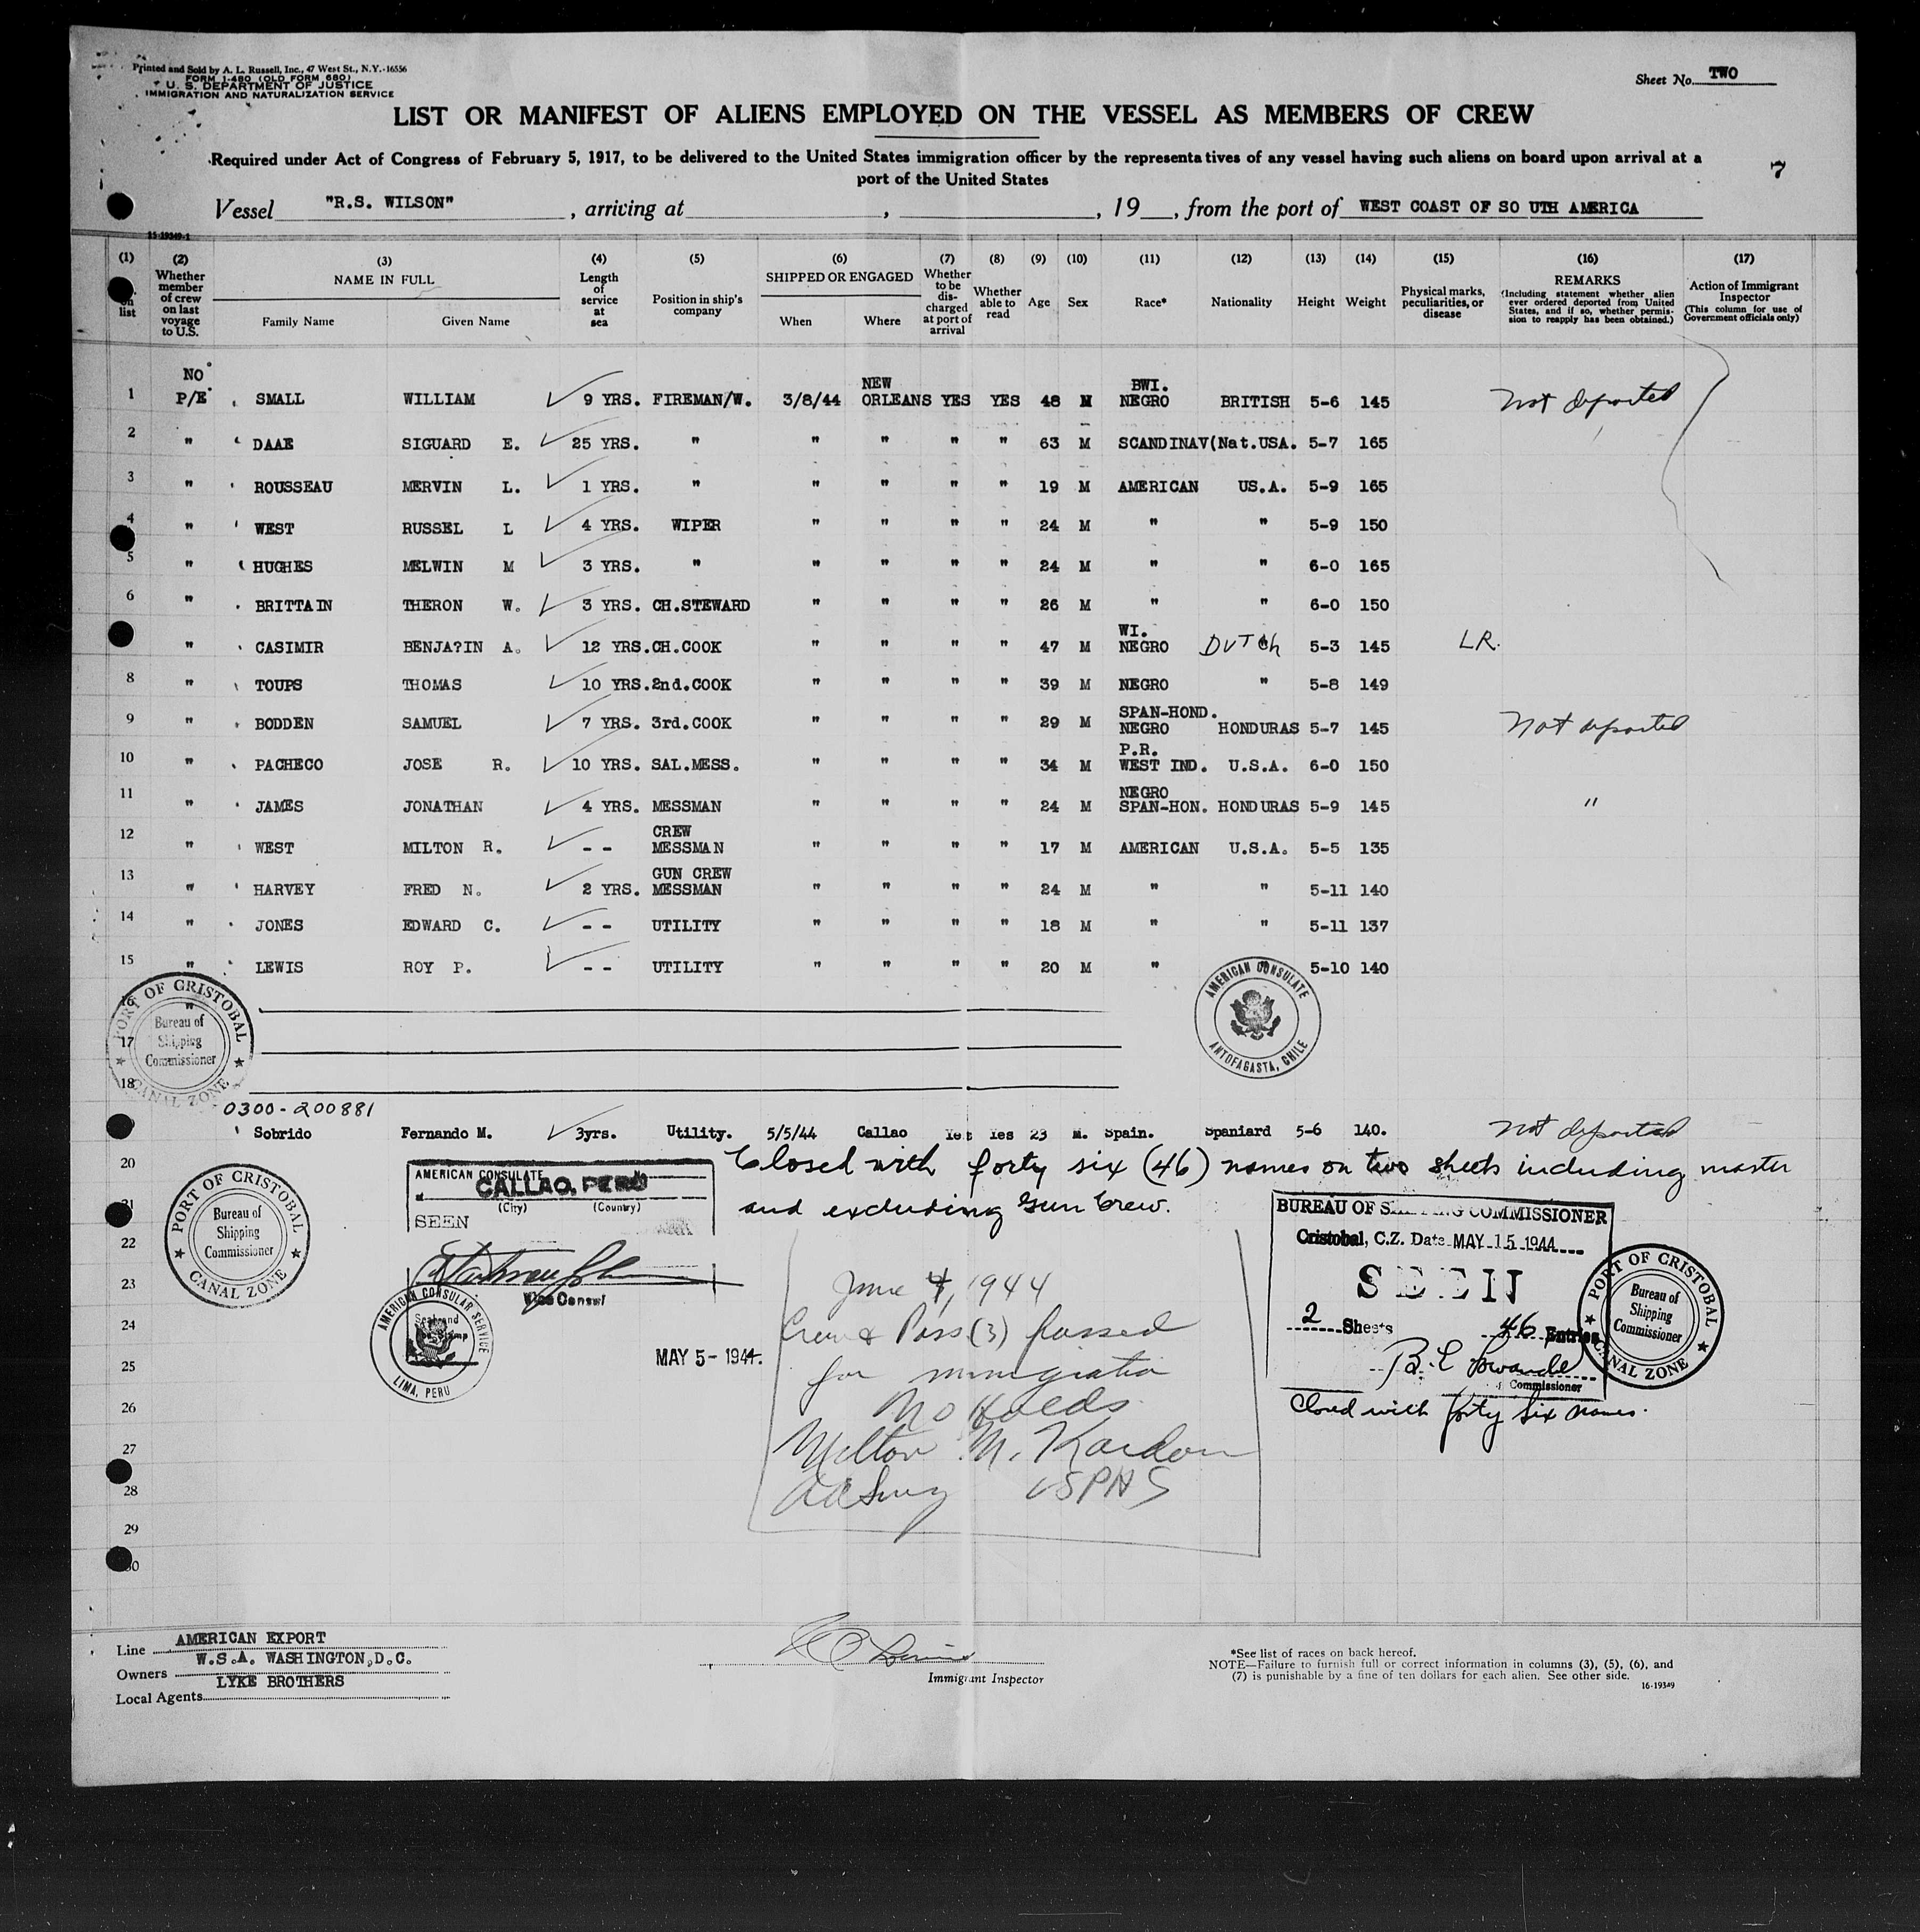 Printed and Sold by A. L. Russell, Inc., 47 West St., N.Y.-16556
FORM I-480 (OLD FORM 680)
U. S. DEPARTMENT OF JUSTICE
IMMIGRATION AND NATURALIZATION SERVICE
Sheet No. TWO
LIST OR MANIFEST OF ALIENS EMPLOYED ON THE VESSEL AS MEMBERS OF CREW
Required under Act of Congress of February 5, 1917, to be delivered to the United States immigration officer by the representatives of any vessel having such aliens on board upon arrival at a
port of the United States
7
Vessel "R.S. WILSON" , arriving at , , 19 , from the port of WEST COAST OF SO UTH AMERICA
(1) (2) (3) (4) (5) (6) (7) (8) (9) (10) (11) (12) (13) (14) (15) (16) (17)
on list
Whether member of crew on last voyage to U.S.
NAME IN FULL
Family Name Given Name
Length of service at sea
Position in ship's company
SHIPPED OR ENGAGED
When Where
Whether to be discharged at port of arrival
Whether able to read
Age Sex Race* Nationality Height Weight
Physical marks, peculiarities, or disease
REMARKS
(Including statement whether alien ever ordered deported from United States, and if so, whether permission to reapply has been obtained.)
Action of Immigrant Inspector
(This column for use of Government officials only)
NO NEW BWI.
1 P/E SMALL WILLIAM 9 YRS. FIREMAN/W. 3/8/44 ORLEANS YES YES 48 M NEGRO BRITISH 5-6 145 Not deported
2 " DAAE SIGUARD E. 25 YRS. " " " " " 63 M SCANDINAV(Nat.USA. 5-7 165
3 " ROUSSEAU MERVIN L. 1 YRS. " " " " " 19 M AMERICAN US.A. 5-9 165
4 " WEST RUSSEL L 4 YRS. WIPER " " " " 24 M " " 5-9 150
5 " HUGHES MELWIN M 3 YRS. " " " " " 24 M " " 6-0 165
6 " BRITTAIN THERON W. 3 YRS. CH.STEWARD " " " " 26 M " " 6-0 150
WI.
" CASIMIR BENJA?IN A. 12 YRS. CH.COOK " " " " 47 M NEGRO DUTCh 5-3 145 LR.
8 " TOUPS THOMAS 10 YRS. 2nd.COOK " " " " 39 M NEGRO " 5-8 149
SPAN-HOND.
9 " BODDEN SAMUEL 7 YRS. 3rd.COOK " " " " 29 M NEGRO HONDURAS 5-7 145 Not deported
P.R.
10 " PACHECO JOSE R. 10 YRS. SAL.MESS. " " " " 34 M WEST IND. U.S.A. 6-0 150
NEGRO
11 " JAMES JONATHAN 4 YRS. MESSMAN " " " " 24 M SPAN-HON. HONDURAS 5-9 145 "
CREW
12 " WEST MILTON R. -- MESSMAN " " " " 17 M AMERICAN U.S.A. 5-5 135
GUN CREW
13 " HARVEY FRED N. 2 YRS. MESSMAN " " " " 24 M " " 5-11 140
14 " JONES EDWARD C. -- UTILITY " " " " 18 M " " 5-11 137
15 " LEWIS ROY P. -- UTILITY " " " " 20 M " " 5-10 140
16 "
17
18
PORT OF CRISTOBAL
Bureau of Shipping Commissioner
CANAL ZONE
AMERICAN CONSULATE
ANTOFAGASTA, CHILE
0300-200881
Sobrido Fernando M. 3yrs. Utility. 5/5/44 Callao Yes Yes 23 M. Spain. Spaniard 5-6 140. Not deported
Closed with forty six (46) names on two sheets including master
and excluding Gun Crew.
20
21
22
23
24
25
26
27
28
29
30
PORT OF CRISTOBAL
Bureau of Shipping Commissioner
CANAL ZONE
AMERICAN CONSULATE
CALLAO, PERU
(City) (Country)
SEEN
Vice Consul
AMERICAN CONSULAR SERVICE
LIMA, PERU
MAY 5-1944.
June 4, 1944
Crew & Pass (3) passed
for immigration
No Holds
Milton M. Kardon
USPHS
BUREAU OF SHIPPING COMMISSIONER
Cristobal, C.Z. Date MAY 15 1944
SEEN
2 Sheets 46 Entries
Commissioner
PORT OF CRISTOBAL
Bureau of Shipping Commissioner
CANAL ZONE
Closed with forty six names.
Line AMERICAN EXPORT
Owners W.S.A. WASHINGTON,D.C.
Local Agents LYKE BROTHERS
Immigrant Inspector
*See list of races on back hereof.
NOTE—Failure to furnish full or correct information in columns (3), (5), (6), and
(7) is punishable by a fine of ten dollars for each alien. See other side.
16-19349